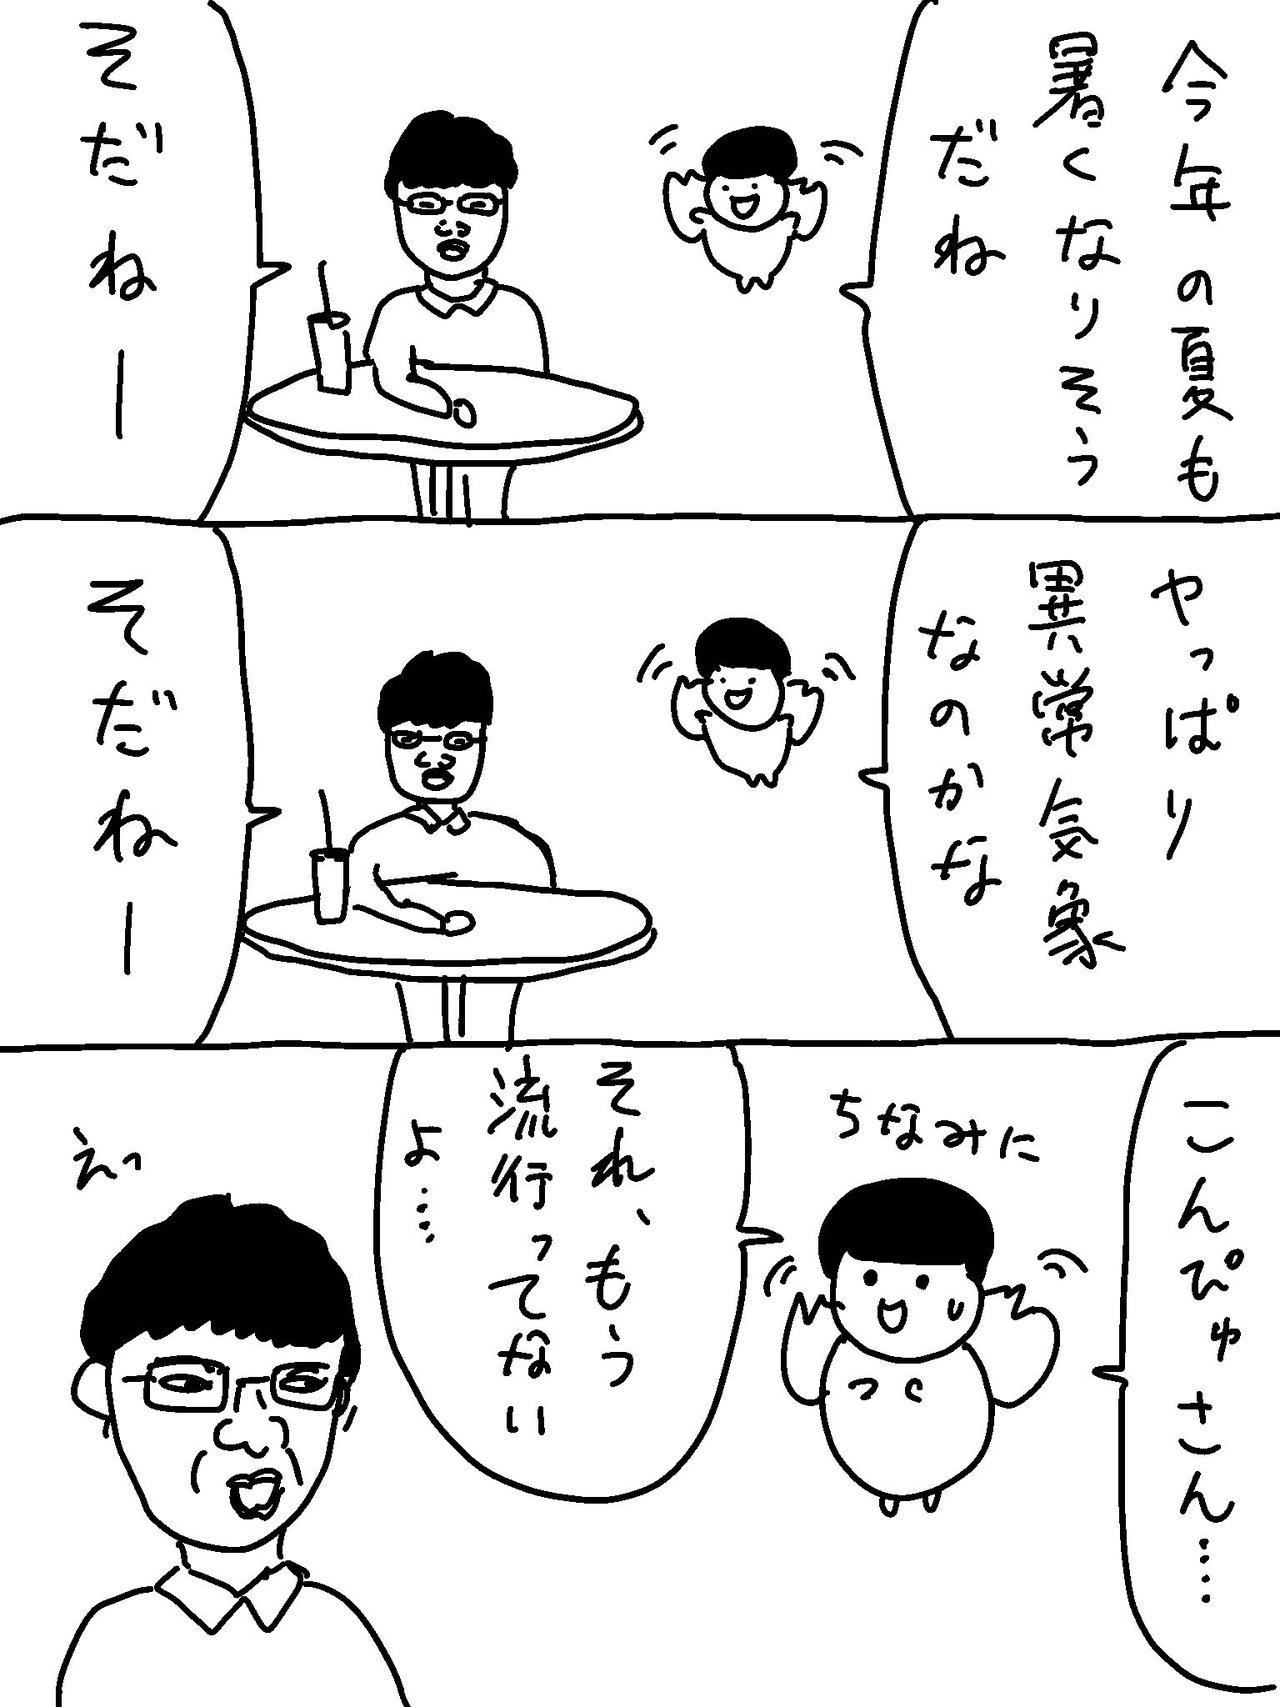 今年の夏も
暑くなりそう
だね
そだねー
やっぱり
異常気象
なのかな
そだねー
こんぴゅさん…‥
ちなみに
それ、もう
流行ってない
よ…‥
えっ